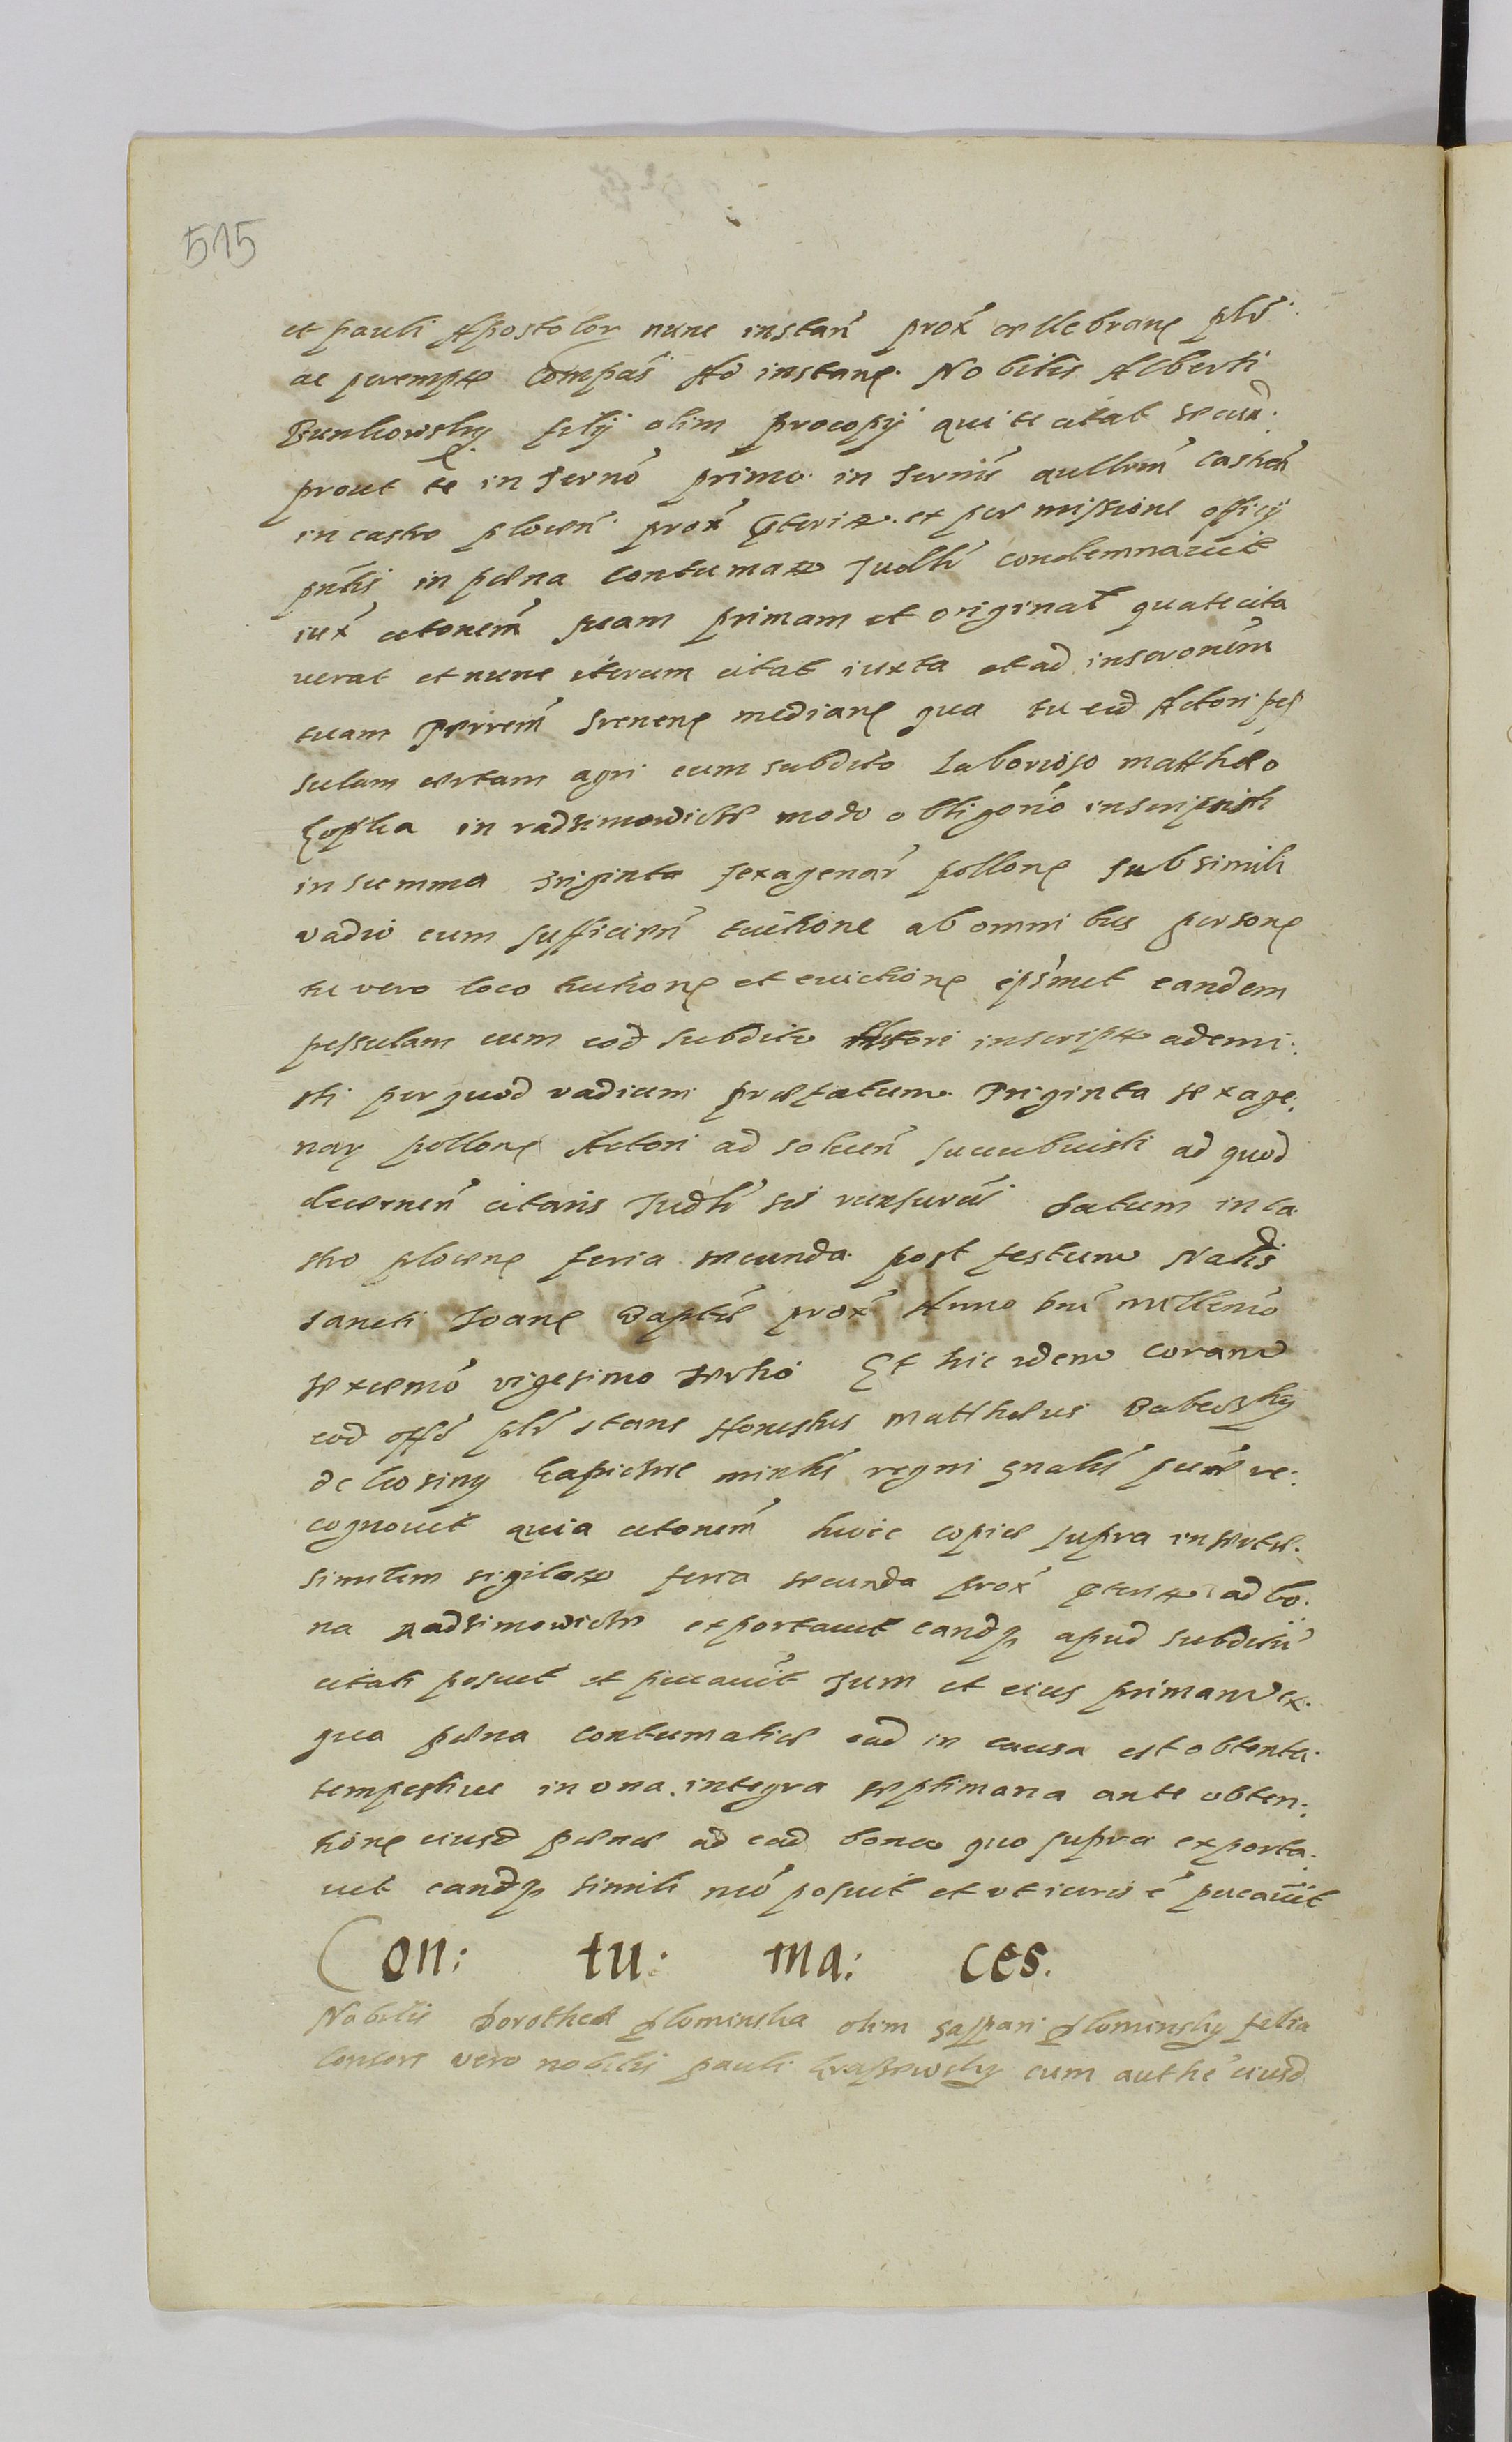 515
et pauli Apostolor nunc instań prox́ cellebrane plr̃
ac perempte Compás Ad instane. Nobilis Alberti
Bunkowsky filij olim procopij qui te citat secund.
prout te in Termó primo in Termís qullrm̃ Castreń
in castro plocen̄ prox́ pterite ex permissione officij
pntis in pena contumace Judlr̃ condemnavit
iux́ cctonem̃ suam primam et original qua te cita
verat et nunc iterum citat iuxta et ad inscronem̃
tuam Terrem̃ Srenene mediane qua tu eid Actori pes
sulam certam agri cum subdito Laborioso matthæo
Zopka in radzimowicze modo obligorió inscripsisti
in summa Triginta sexagenar̃ pollone sub simili
vadio cum sufficien̄ tuitione ab omnibus persone
tu vero loco tuitione et evictione ipsmet eandem
pessulam cum eod subdito Actori inscripte ademi:
sti per quod vadium præfatum Triginta sexage:
nar pollone Actori ad solven̄ succubuisti ad quod
decernen̄ citaris Judlr̃ sis responsurus Datum in ca
stro plocene feria secunda post festum Natlis
Sancti Joane Baptæ prox́ Anno Dni millemó
sexcemó vigesimo tertio Et hic idem coram
eod offó plr̃ stans Honestus Matthæus Babecky
de Losiny Lapicze minlis regni gnalis pntĩs re:
cognovit quia cctonem̃ huic copiæ supra insertæ
similem sigilate feria secunda prox́ pterite ad bo.
na radzimowicze exportavit eandq apud subditũ
citati posuit et pucavit Tum et eius primam ex
qua pena contumatiæ ead in causa est obtenta
tempestive in una integra septimana ante obten:
tione eiusd penæ ad ead bona quo supra exporta:
vit eandq simili mó posuit et ut iuris é pucavit
Con: tu: ma: ces.
Nobilis Dorothea glominska olim Gaspari glominsky filia
Consors vero nobilis pauli Kraszewsky cum authé eiusd